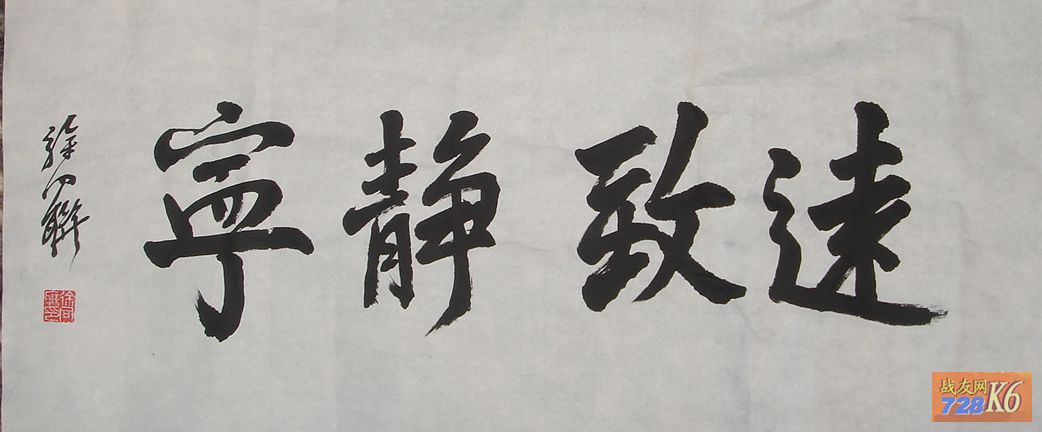 寧静致遠
战友网
728 K6